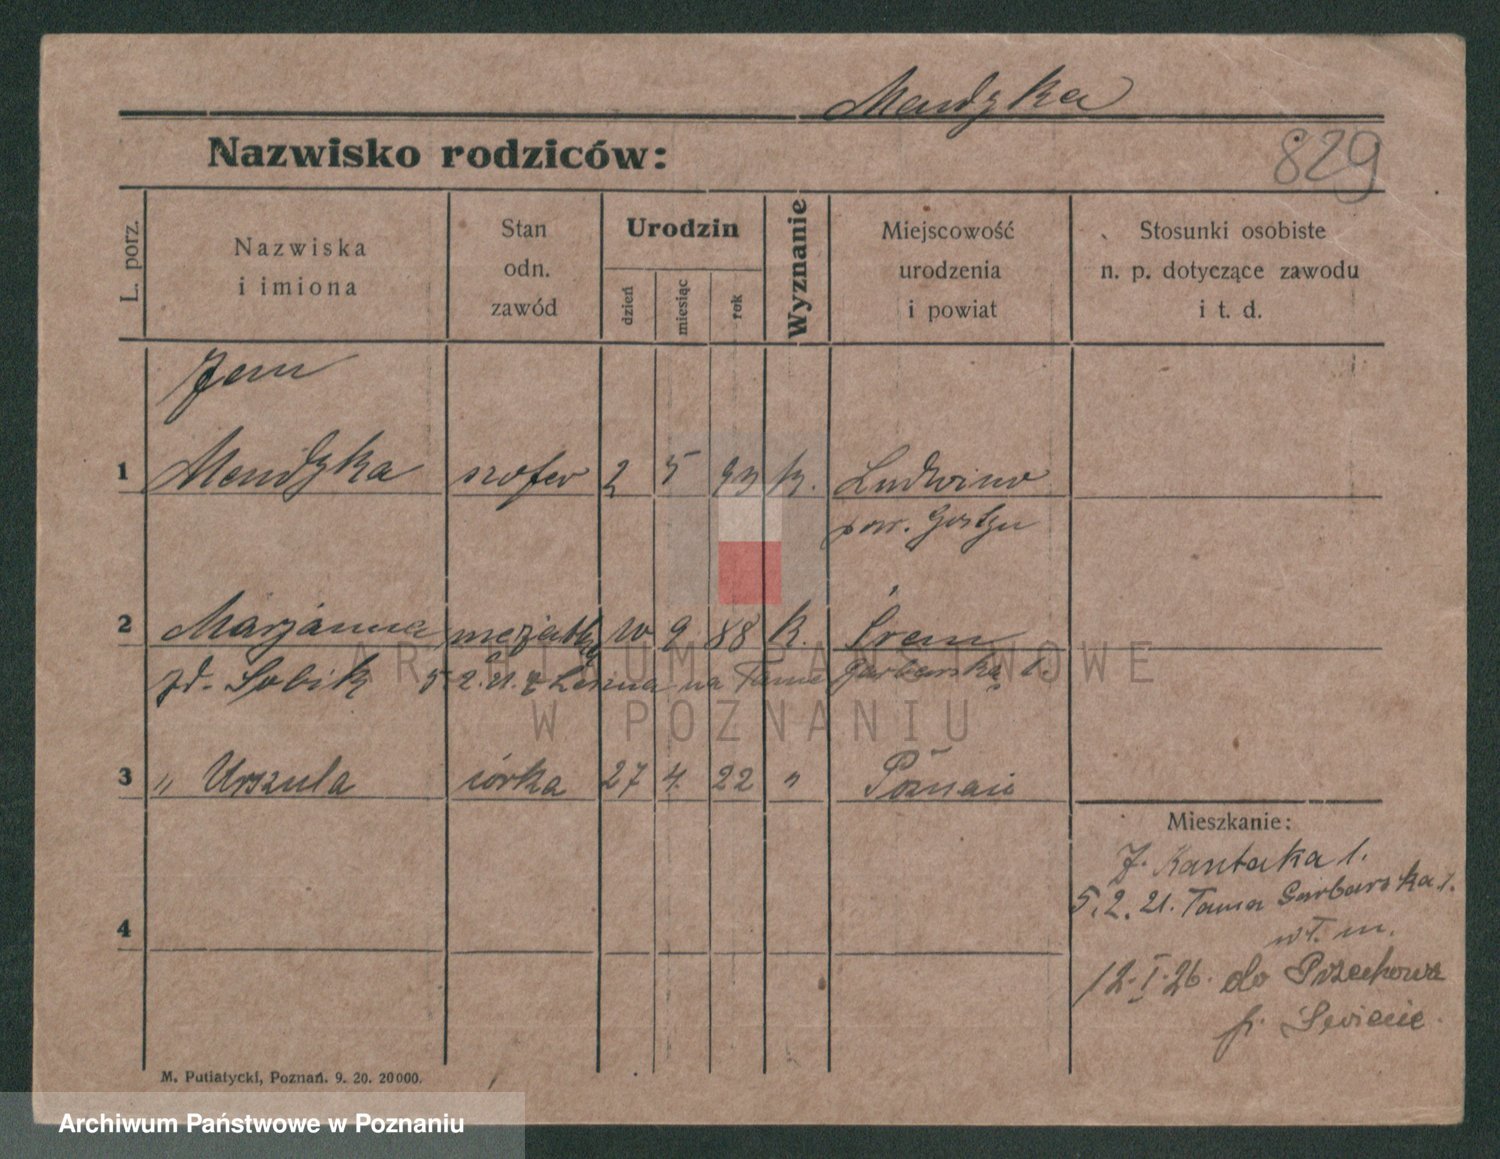 Mendyka
829
Nazwisko rodziców:
L. porz.
Nazwiska
i imiona
Stan
odn.
zawód
Urodzin
dzień
miesiąc
rok
Wyznanie
Miejscowość
urodzenia
i powiat
Stosunki osobiste
n. p. dotyczące zawodu
i t. d.
Jan
1 Mendyka szofer 2 5 93 k. Ludwinow
pow. Gostyń
2 Marjanna mężatka 10 9 88 k. Śrem
zd. Sobik 5.2.21. z Leszna na Tama Garbarska 1.
3 „ Urszula córka 27 4. 22 „ Poznań
Mieszkanie:
Kantaka 1.
5.2.21. Tama Garbarska
4
12.I.26. do Przechowa
p. Świecie.
M. Putiatycki, Poznań. 9. 20. 20000.
ARCHIWUM PAŃSTWOWE
W POZNANIU
Archiwum Państwowe w Poznaniu